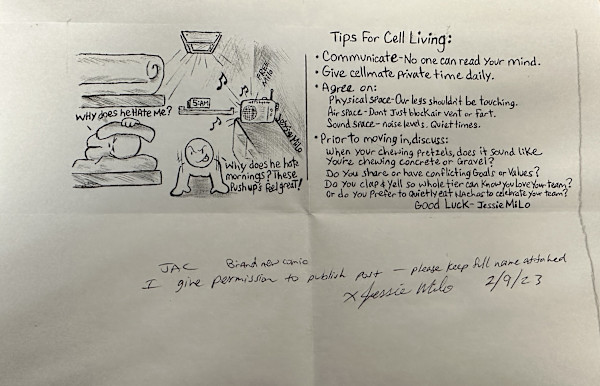 Tips For Cell Living:
• Communicate - No one can read your mind.
• Give cellmate private time daily.
• Agree on:
Physical space - Our legs shouldn't be touching.
Air space - Dont Just block air vent or fart.
Sound space - noise levels. Quiet times.
• Prior to moving in, discuss:
When your chewing Pretzels, does it sound like
You're chewing concrete or gravel?
Do you share or have conflicting Goals or Values?
Do you clap & Yell so whole tier can know you love your team?
Or do you Prefer to Quietly eat Nachos to celebrate your team?
Good Luck - Jessie Milo
Why does he Hate Me?
5:AM
FREE Milo
Jessie Milo
Why does he hate
mornings? These
Pushup's Feel great!
JAC Brand new comic
I give permission to publish post — please keep full name attached
x Jessie Milo 2/9/23